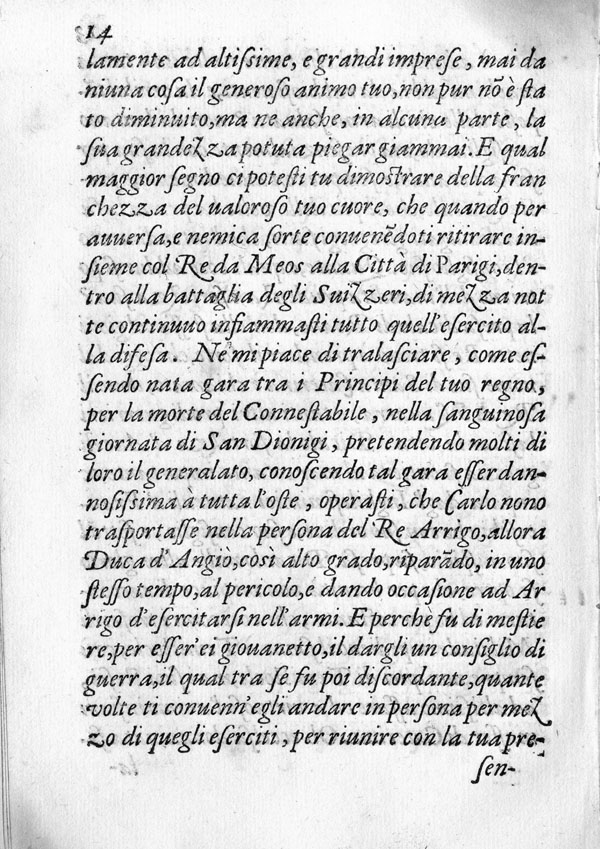 14
lamente ad altissime, e grandi imprese, mai da
niuna cosa il generoso animo tuo, non pur nõ è sta
to diminuito, ma ne anche, in alcuna parte, la
sua grandezza potuta piegar giammai. E qual
maggior segno ci potesti tu dimostrare della fran
chezza del ualoroso tuo cuore, che quando per
auuersa, e nemica sorte conuenẽdoti ritirare in-
sieme col Re da Meos alla Città di Parigi, den-
tro alla battaglia degli Suizzeri, di mezza not
te continuuo infiammasti tutto quell'esercito al-
la difesa. Ne mi piace di tralasciare, come es-
sendo nata gara tra i Principi del tuo regno,
per la morte del Connestabile, nella sanguinosa
giornata di San Dionigi, pretendendo molti di
loro il generalato, conoscendo tal gara esser dan-
nosissima à tutta l'oste, operasti, che Carlo nono
trasportasse nella persona del Re Arrigo, allora
Duca d'Angiò, così alto grado, riparãdo, in uno
stesso tempo, al pericolo, e dando occasione ad Ar
rigo d'esercitarsi nell'armi. E perchè fu di mestie
re, per esser'ei giouanetto, il dargli un consiglio di
guerra, il qual tra se fu poi discordante, quante
volte ti conuenn'egli andare in persona per mez
zo di quegli eserciti, per riunire con la tua pre-
sen-